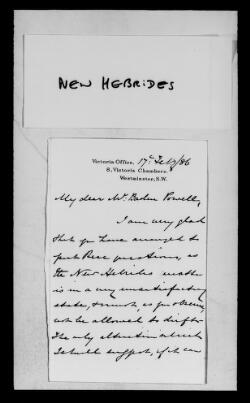 NEW HEBRIDES
Victoria Office, 17th Feby/86
8, Victoria Chambers,
Westminster, S.W.
My dear Mr. Baden Powell,
I am very glad
that you have arranged to
put these questions, as
the New Hebrides matter
is in a very unsatisfactory
state, & must, as you observe,
not be allowed to drift.
The only alteration which
I should suggest, if it can